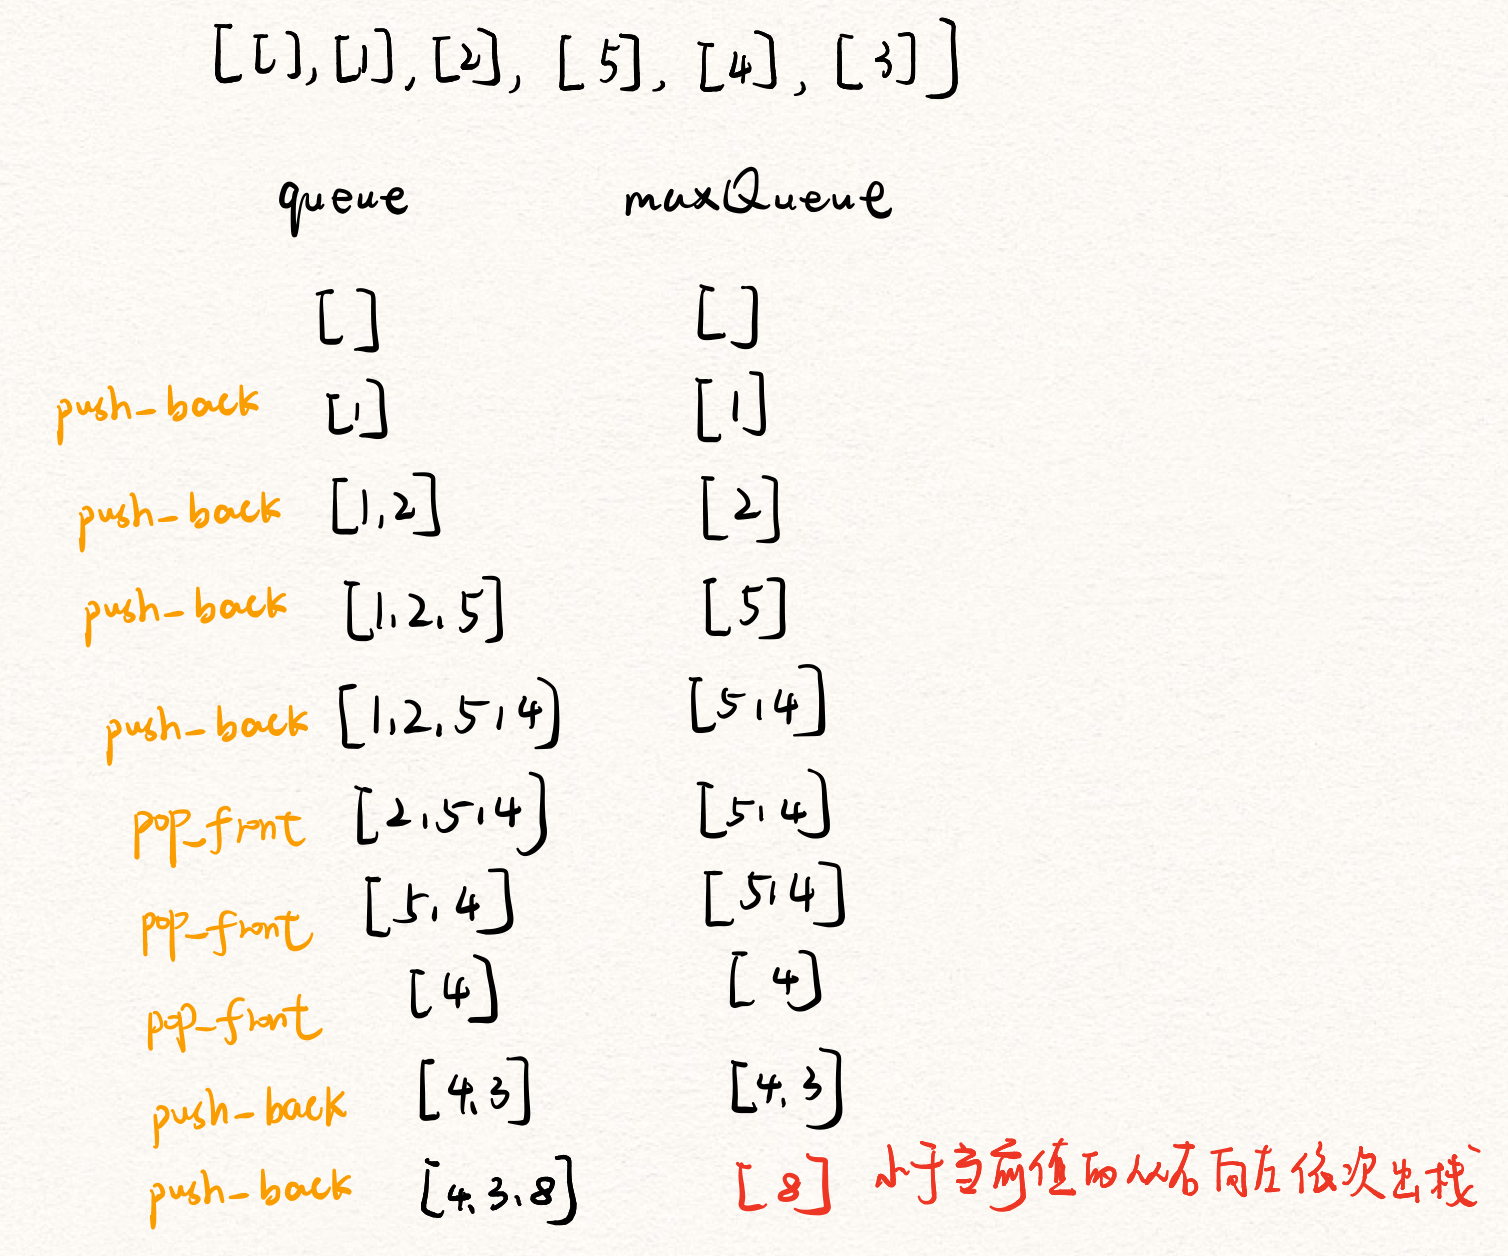 [[], [1], [2], [5], [4], [3]]
queue maxQueue
[] []
push_back [1] [1]
push_back [1,2] [2]
push_back [1,2,5] [5]
push_back [1,2,5,4] [5,4]
pop_front [2,5,4] [5,4]
pop_front [5,4] [5,4]
pop_front [4] [4]
push_back [4,3] [4,3]
push_back [4,3,8] [8] 小于当前值的从右向左依次出栈